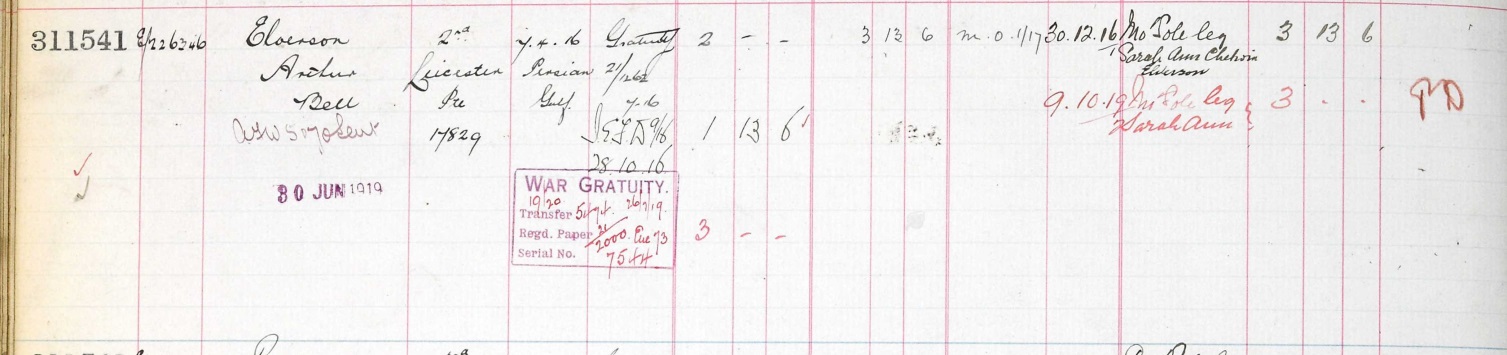 311541 E/226346 Elverson 2nd 7.4.16 Gratuity 2 - - 3 13 6 M.O. 1/17 30.12.16 Mo Sole leg 3 13 6
Arthur Leicester Persian 21/ Sarah Ann
Bell Pte Gulf 7.16 Elverson
9.10.19 Mo Sole leg 3 . . PD
17829 9/16 1 13 6 Sarah Ann
28.10.16
30 JUN 1919
WAR GRATUITY.
19/20
Transfer 26/7/19.
Regd. Paper 21/2000 73 3 - -
Serial No. 7544